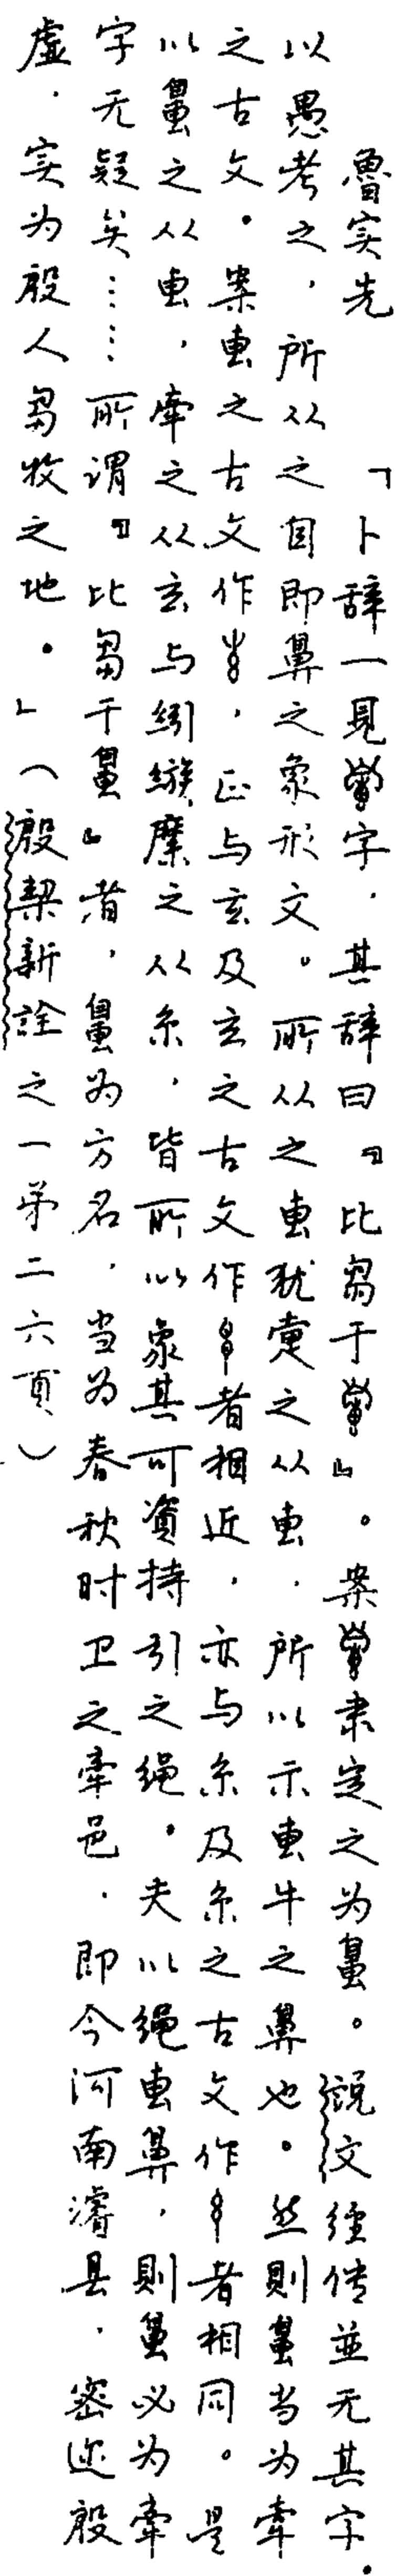 魯实先　「卜辞一見字，其辞曰『比芻于』。案隶定之为𤲞。說文经传並无其字.
以愚考之，所从之自即鼻之象形文。所从之叀犹疐之从叀，所以示叀牛之鼻也。然則当为牵
之古文。案叀之古文作，正与玄及玄之古文作者相近，亦与糸及糸之古文作者相同。是
以之从叀，牵之从玄与紖縼縻之从糸，皆所以象其可資持引之绳。夫以绳叀鼻，則必为牵
字无疑矣……所谓『比芻于』者，为方名，当为春秋时卫之牵邑，即今河南濬县，密迩殷
虚，实为殷人芻牧之地。」（殷契新詮之一第二六頁）